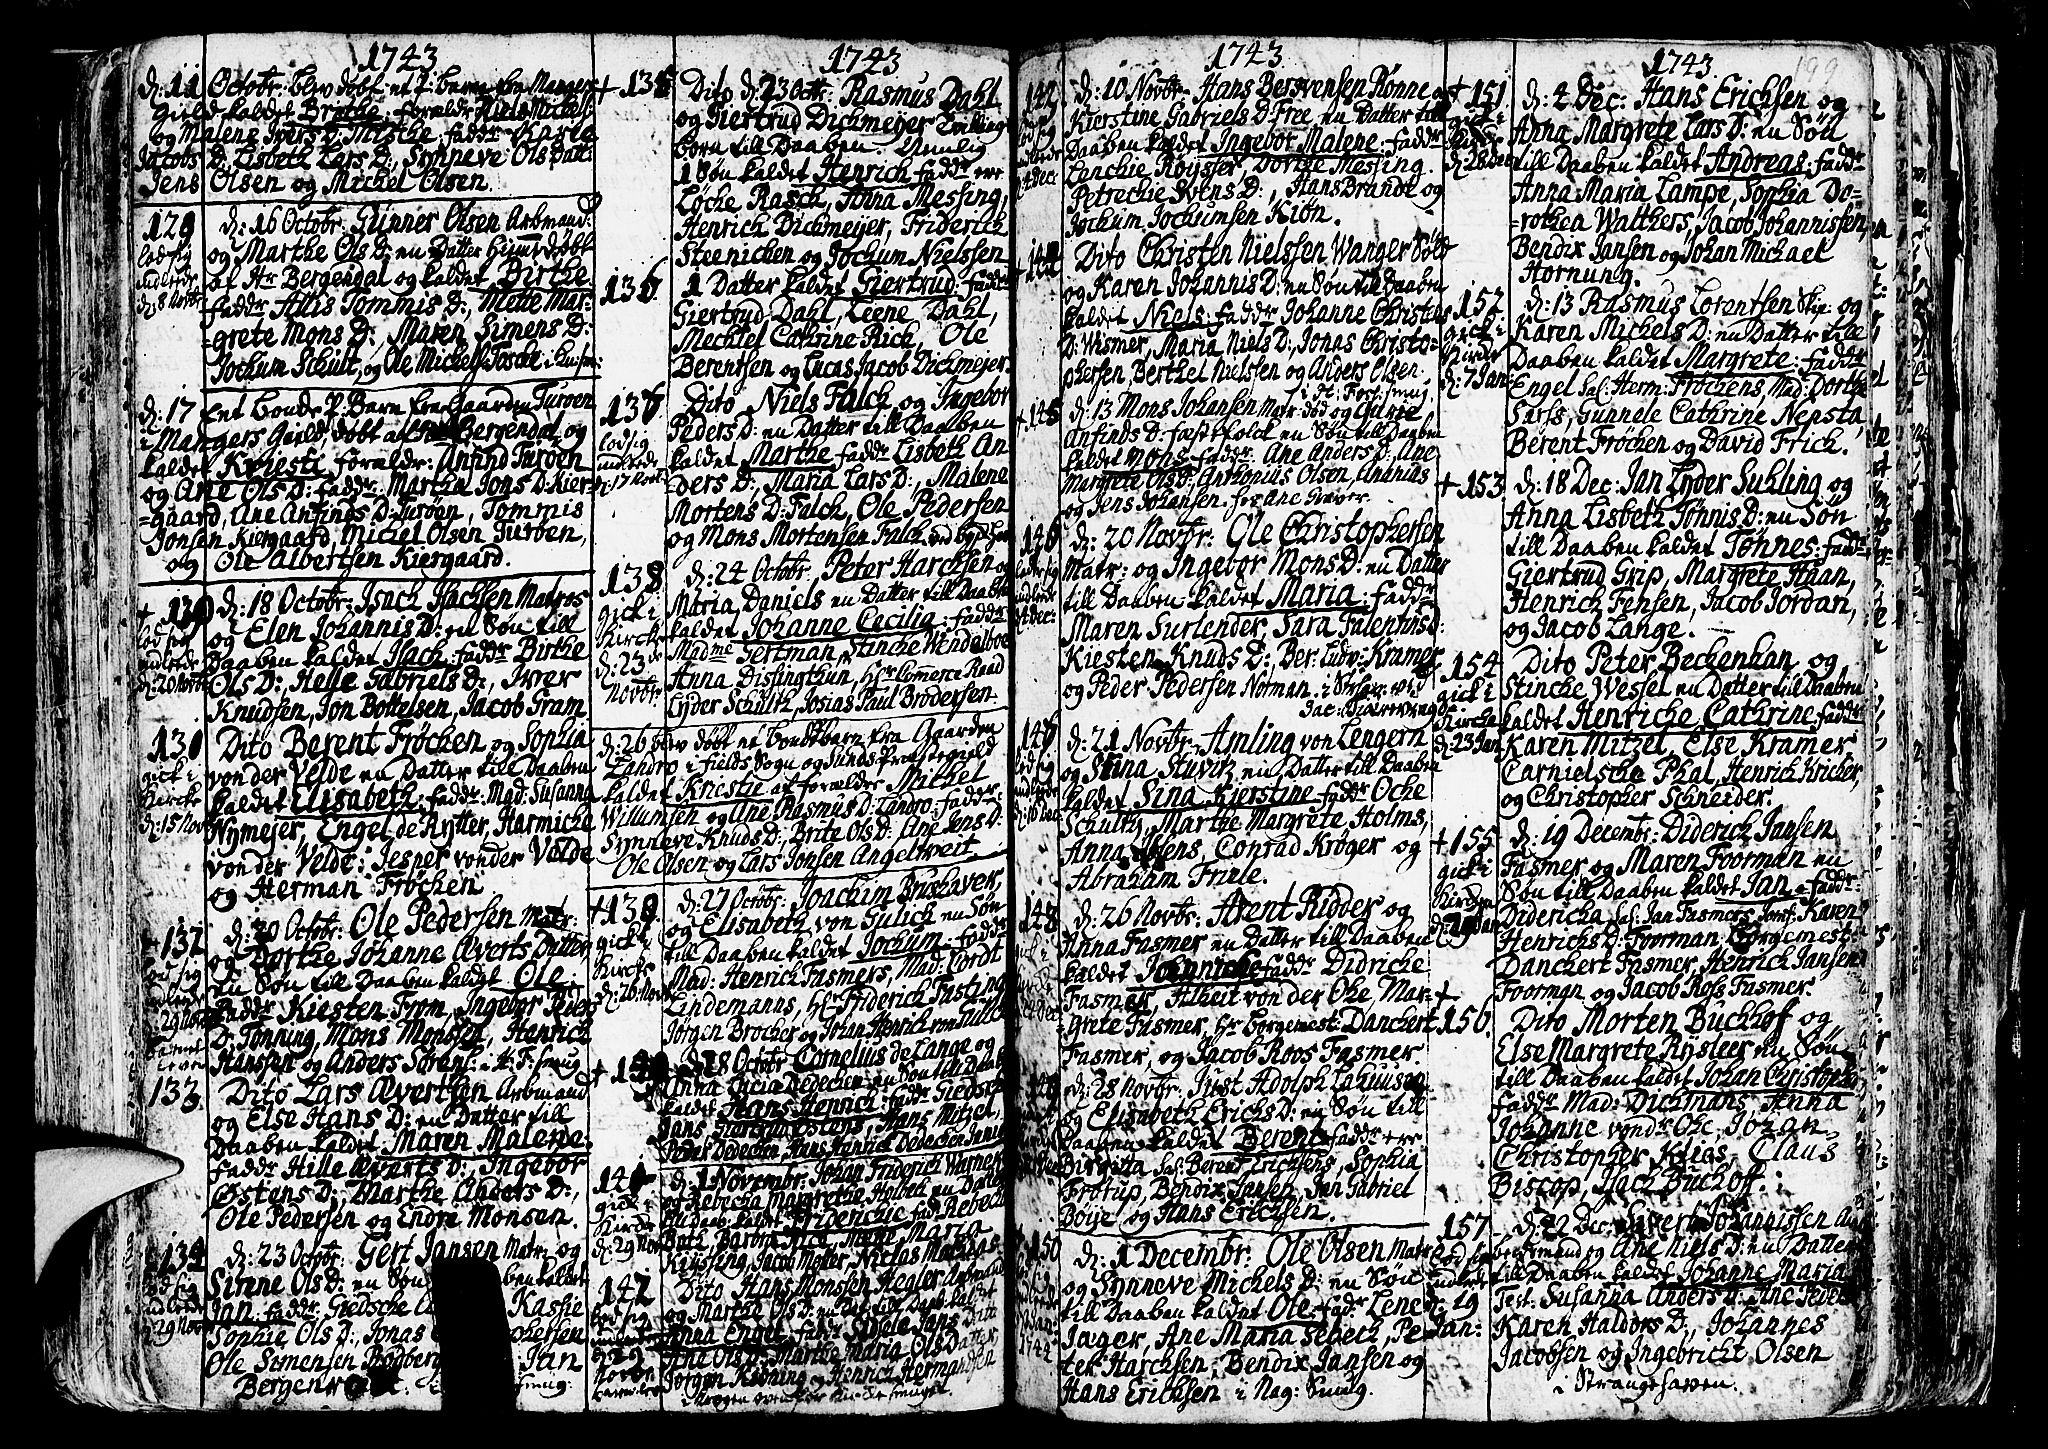 1743
d: 11 Octobr. blev döbt et P: barn fra Mangers
Gield kaldet Birthe, foreldr Niels Michels:
og Malene Ivers D: Misthe, faddr Karie
Jacobs D: Lisbeth Lars D: Synneve Ols Datt:
Jens Olsen og Michel Olsen.
129
lod sig
indlede
d: 8 Novbr
d: 16 Octobr: Gunner Olsen Arbmand:
og Marthe Ols D: en Datter hiemedöbt
af Hr Bergendal og kaldet Birthe
faddr Allis Tommis D:, Mette Mar-
grete Mons D: Maren Simens D:
Jochum Schult, og Ole Michels
d: 17 Ent bonde P: Barn fra Gaarden Turöen
i Mangers Gield, döbt af Hr Bergendal og
kaldet Kriesti foreldr: Anfind Turöen
og Ane Ols D: faddr: Marthe Jons D: Kier-
gaard, Ane Anfinds D: Turöen, Tommis
Jonsen Kiergaard, Michel Olsen Turöen,
og Ole Albertsen Kiergaard.
+ 130
lod sig
indlede
d: 20 Novbr
d: 18 Octobr: Isach Isachsen Matros
og Elen Johannis D: en Sön till
Daaben kaldet Isach, faddr Birthe
Ols D:, Helle Gabriels D:, Iver
Knudsen, Jon Bottelsen, Jacob Gram
131
gick i
Kircke
d: 15 Nov
Dito Berent Fröchen og Sophia
von der Velde en Datter till Daaben
kaldet Elisabeth, faddr: Mad: Susanna
Nymejer, Engel de Rytter, Harmiche
von der Velde, Jesper vonder Velde
og Herman Fröchen
+ 132
lod sig
indlede
29 Nov
d: 20 Octobr: Ole Pedersen Matr:
og Dorthe Johanne Æverts Datter
en Sön till Daaben kaldet Ole.
faddr: Kiesten From, Ingebor Peders
D: Tönning, Mons Monssen, Henrich
Hanssen og Anders Sörens.
133
Dito Lars Ævertsen Arbmand
og Else Hans D: en Datter till
Daaben kaldet Maren Malene.
faddr Hille Æverts D:, Ingebor
Östens D:, Marthe Anders D:,
Ole Pedersen og Endre Monsen.
134
lod sig
indlede
29 Nov
d: 23 Octobr: Gert Jansen Matr: og
Sirene Ols D: en Sön
Jan: faddr: Giedsche Kasie
Sophie Ols D:, Jonas
Ole Simensen Jan
1743
+ 135
Dito d: 23 Octr. Rasmus Dahl
og Giertrud Dickmeijer Tvilling
börn till Daaben. Nemlig
1 Sön kaldet Henrich, faddr ere
Löcke Rasch, Anna Messing,
Henrich Dickmeijer, Friderich
Steenichen og Jochum Nielssen
136
1 Datter kaldet Giertrud, faddr
Giertrud Dahl, Leene Dahl,
Mechtel Cathrine Rick, Ole
Berentsen og Lucas Jacob Dickmejer
137
lod sig
indlede
d: 17 Novbr
Dito Niels Falck og Ingebor
Peders D: en Datter till Daaben
kaldet Marthe faddr Lisbeth An
ders D:, Maria Lars D:, Malene
Mortens D: Falck, Ole Pedersen
og Mons Mortensen Falck
138
gick i
Kircke
d: 23de
Novbr
d: 24 Octobr. Peter Harchsen og
Maria Daniels en Datter till Daaben
kaldet Johanne Cecilia: faddr
Madme Gertman, Stincke Wendelboe
Anna Dislingthun, Hr Commerce Raad
Lyder Schultz, Josias Paul Brödersen
d: 26 blev döbt et bondebarn fra Gaarden
Tandro i fields Sogn og Sunds Præstegield
kaldet Kriestie af foreldr Mickel
Willumsen og Ane Rasmus D: Tandro: faddr:
Synneve Knuds D:, Brite Ols D: Ane Jens D:
Ole Olsen og Lars Jonsen Angeltveit
+ 139
gick i
Kircke
d: 26 Novbr
d: 27 Octobr: Joachim Bushaver
og Elisabeth von Gulich en Sön
till Daaben kaldet Jochum. faddr
Mad: Henrich Fasmers, Mad: Cordt
Lindemanns, Hr Friderich Fasting
Jörgen Brocker og Johan Henrich von Gülich
+ 140
d: 28 Octobr Cornelius de Lange og
Anna Lucia Dedechen en Sön till Daaben
kaldet Hans Henrich: faddr Giedsche
Jans Hans Mitzel,
Peder Dedechen, Hans Henrich Dedechen
141
gick i
Kircke
d: 29 Nov
d: 1 Novembr: Johan Friderich Warner
og Rebecha Margrethe Holbek en Datter
till daab: kaldet Friderichie fadr Rebecha
Maria
Kiussing, Jacob Moller, Niclas Mathias
142
lod sig
indlede
29
Novbr
Dito Hans Monssen Hegler
og Martha Ols D:
Anna Engel, faddr Sidsele Jans D
Ane Ols D: Marthe Maria Ols Datter,
Jörgen Kröning og Henrich Hermansen
1743
d: 10 Novbr. Hans Bersvensen Rönne og
Kierstine Gabriels D: Free, en Datter till
Daaben kaldet Ingebor Malene: faddr
Lenchie Röysser, Dorthe Messing,
Petrechie Svens D:, Hans Brandt og
Jochum Jochumsen Kiön.
+ 144
Dito Christen Nielssen Wanger
og Karen Johannis D: en Sön till Daaben
kaldet Niels: faddr Johanne Christens
D: Wismer, Maria Niels D:, Jonas Christo-
phersen, Berthel Nielssen og Anders Olsen.
+ 145
d: 13 Mons Johansen Matr: död og Gurie
Anfinds D: fæstefolck en Sön till Daaben
kaldet Mons. faddr: Ane Anders D:, Ane
Margrete Ols D:, Anthonius Olsen, Ananias
og Jens Johansen.
146
d: 20 Novbr: Ole Christophersen
Matr: og Ingebor Mons D: en Datter
till Daaben kaldet Maria: faddr
Maren Surlender, Sara Falentins D:
Kiesten Knuds D:, Ber: Ludv: Kramer
og Peder Pedersen Norman.
147
d: 21 Novbr: Amling von Lengern
og Stina Stuvitz ein Datter till Daaben
kaldet Sina Kierstine faddr Ocke
Schultz, Marthe Margrete Holms,
Anna Conrad Kröger og
Abraham Friele.
148
d: 26 Novbr: Arent Ridder og
Anna Fasmer en Datter till Daaben
kaldet faddr Didriche
Fasmer, Alheit von der Ohe, Mar-
grete Fasmer, Hr Borgemest: Danckert
Fasmer, og Jacob Roos Fasmer.
149
d: 28 Novbr: Just Adolph
og Elisabeth Erichs D: en Sön till
Daaben kaldet Berent, faddr ere
Birgitta Sal: Berent Erichsens, Sophia
Frotup, Bendix Jansen, Jan Gabriel
Böije og Hans Erichsen.
150
d: 1 Decembr: Ole Olsen Matr:
og Synneve Michels D: en Sön
till Daaben kaldet Ole, fadr Lene
Jæger, Ane Maria Sebeck, Pe-
ter Harchsen, Bendix Jansen og
Hans Erichsen i Nag: Smug.
1743
199
+ 151
gick i
Kircke
d: 28 Dec
d: 2 Dec: Hans Erichsen og
Anna Margrete Lars D: en Sön
till Daaben kaldet Andreas: faddr
Anna Maria Lampe, Sophia Do-
rothea Walthers, Jacob Johannissen,
Bendix Jansen og Johan Michael
Hornung.
152
gick i
Kircke
d: 7 Jan
d: 13 Rasmus Lorentsen Skip: og
Karen Michels D: en Datter till
Daaben kaldet Margrete: faddr
Engel Sal: Herm: Fröchens, Mad: Dorthe
Sarss, Gunnele Cathrine Nepsta,
Berent Fröchen og David Frick.
+ 153
d: 18 Dec: Jan Lyder Suhling og
Anna Lisbeth Tönnis D: en Sön
till Daaben kaldet Tönnes: faddr
Giertrud Grip, Margrete Haan,
Henrich Jensen, Jacob Jordan,
og Jacob Lange.
154
gick i
Kircke
d: 23 Jan
Dito Peter Beckenhan og
Stincke Wessel en Datter till Daaben
kaldet Henriche Cathrine, faddr
Karen Mitzel, Else Kramer
Carnielsche Phal, Henrich Kricher,
og Christopher Schneider.
+ 155
gick i
Kircken
d: 29 Jan
d: 19 Decembr: Diderich Jansen
Fasmer og Maren Foorman en
Sön till Daaben kaldet Jan. faddr:
Didericha Sal: Jan Fasmers, Jomf: Karen
Henrichs D: Foorman, Borgemest:
Danckert Fasmer, Henrich Jansen
Foorman og Jacob Ross Fasmer.
+ 156
Dito Morten Buchhof og
Else Margrete Rysleer en Sön
till Daaben kaldet Johan Christopher
faddr Mad: Dickmans, Anna
Johanne vondr Ohe, Johan
Christopher Krigs, Claus
Biscop, Isach Buchoff.
157
lod sig
indlede
d: 19
Jan:
d: 22 Dec Sivert Johannissen
beidsmand og Ane Niels D: en Datter
till Daaben kaldet Johanne Maria
Test: Susanna Anders D: Ane Peders
Karen Haldors D:, Johannes
Jacobsen og Ingebricht Olsen
i Strangehaven.